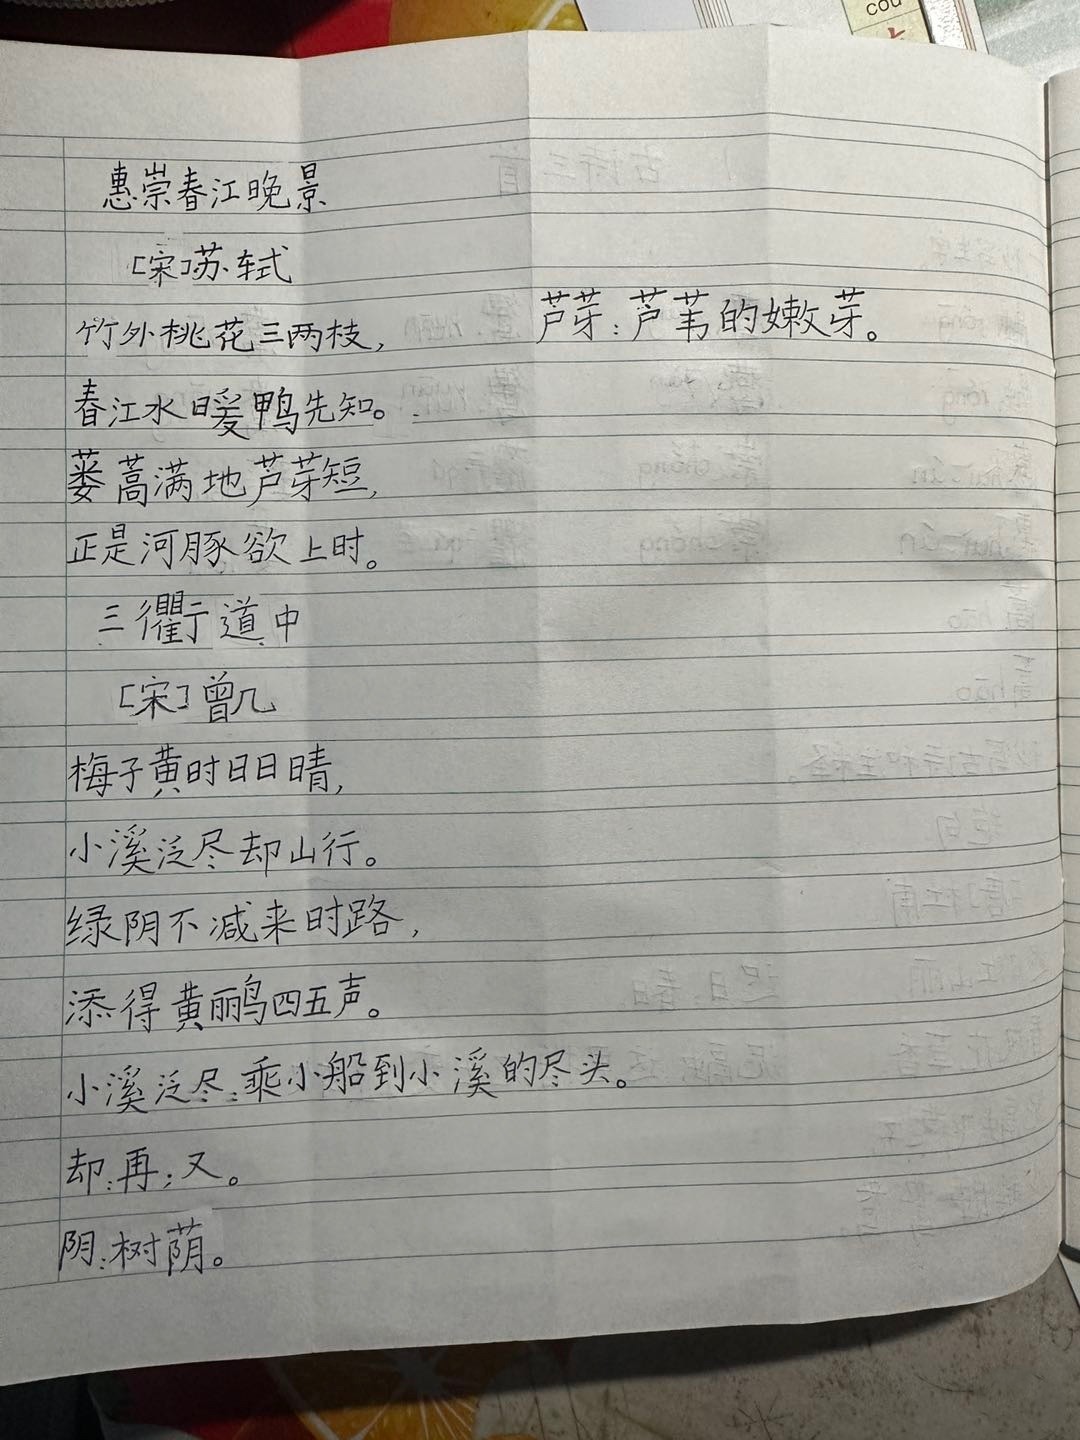 惠崇春江晚景
[宋]苏轼
竹外桃花三两枝,
春江水暖鸭先知。
蒌蒿满地芦芽短,
正是河豚欲上时。
芦芽:芦苇的嫩芽。
三衢道中
[宋]曾几
梅子黄时日日晴,
小溪泛尽却山行。
绿阴不减来时路,
添得黄鹂四五声。
小溪泛尽:乘小船到小溪的尽头。
却:再;又。
阴:树荫。
cou